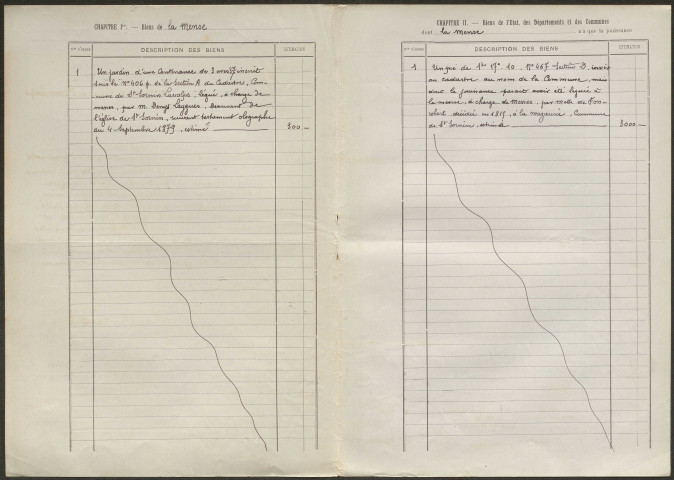 CHAPITRE Ier. — Biens de la Mense
Nos D'ORDRE
DESCRIPTION DES BIENS
ESTIMATION
1
Un jardin d'une Contenance de 3 ares inscrit
sous le No 406 p. de la Section A du Cadastre, Com-
mune de St-Sornin Lavolps, légué, à charge de
messes, par M. Denys
l'église de St Sornin, suivant testament olographe
du 4 Septembre 1879, estimé
300 —
CHAPITRE II. — Biens de l'Etat, des Départements et des Communes
dont la Mense n'a que la jouissance
Nos D'ORDRE
DESCRIPTION DES BIENS
ESTIMATION
1
Un pré de 1ha 17a 10. No 467 Section B, inscrit
au cadastre au nom de la Commune, mais
dont la jouissance paraît avoir été léguée à
la mense, à charge de Messes, par Melle de
décédée en 1815, à la
de St Sornin, estimé
3000 —